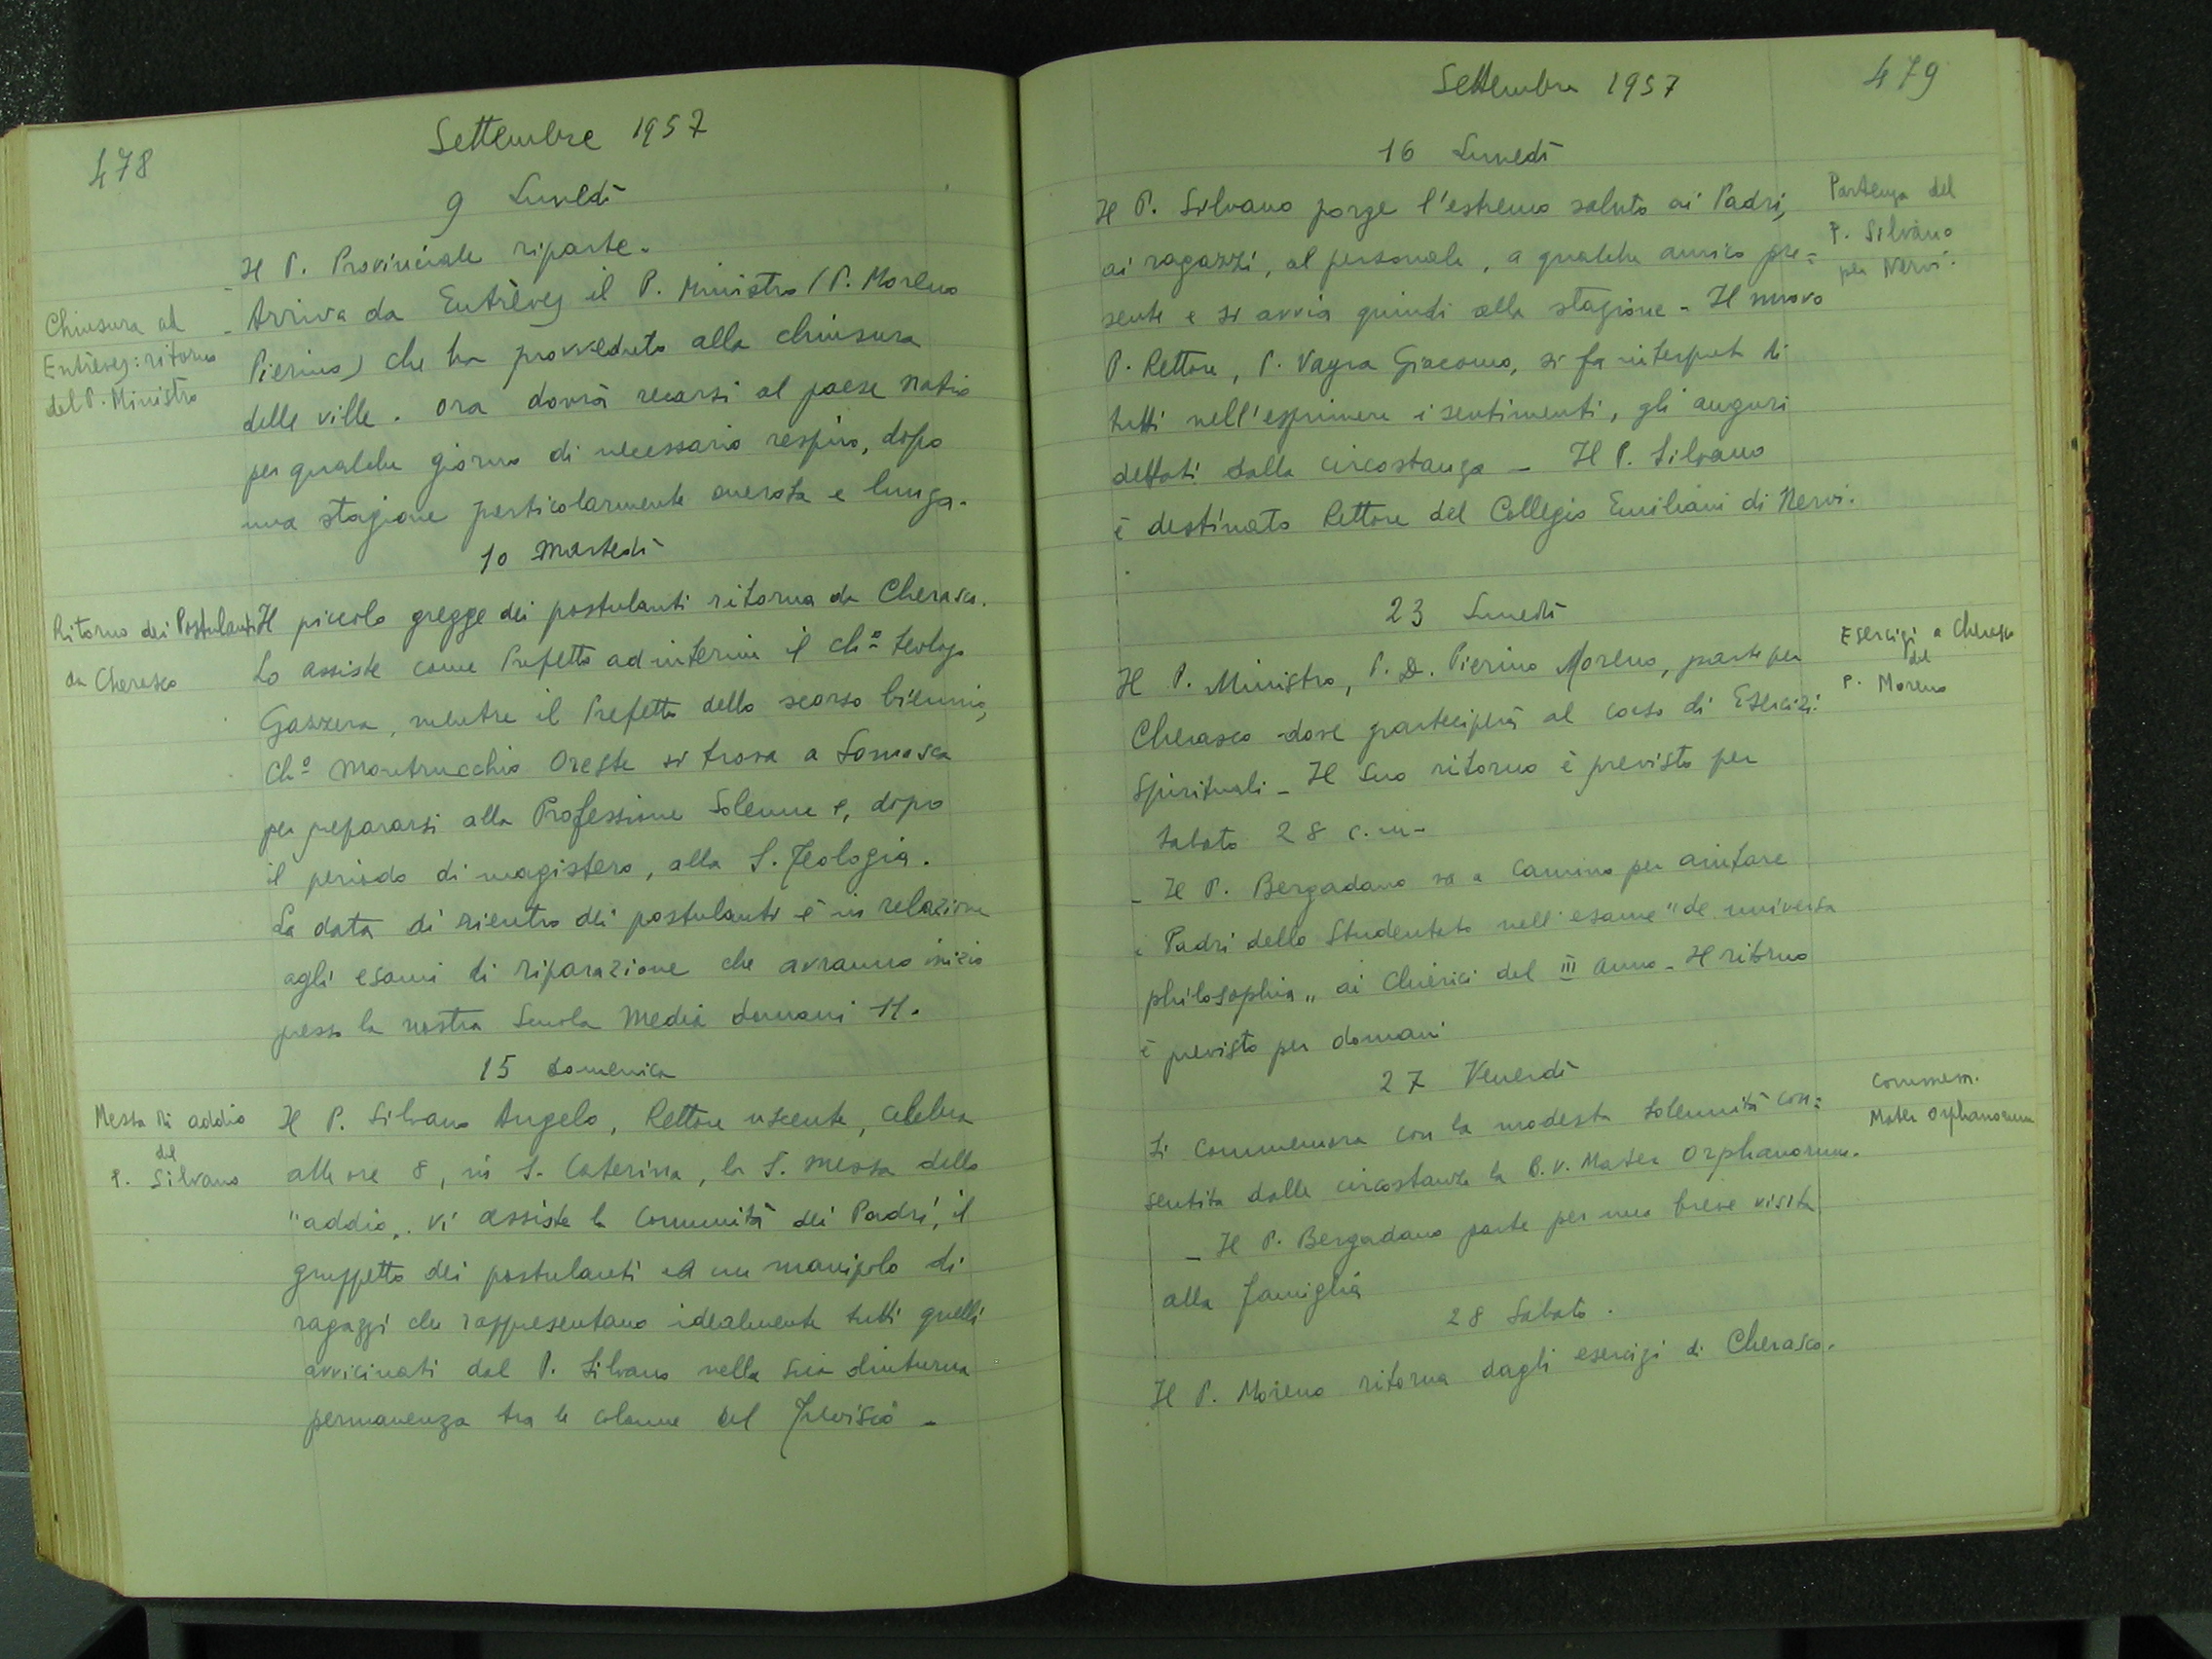 478
Settembre 1957
9 Lunedì
Il P. Provinciale riparte.
Chiusura ad
Entrèves: ritorno
del P. Ministro
- Arriva da Entrèves il P. Ministro (P. Moreno
Pierino) che ha provveduto alla chiusura
delle ville. Ora dovrà recarsi al paese natio
per qualche giorno di necessario respiro, dopo
una stagione particolarmente onerosa e lunga.
10 Martedì
Ritorno dei Postulanti
da Cherasco
Il piccolo gregge dei postulanti ritorna da Cherasco.
Lo assiste come Prefetto ad interim il ch.o teologo
Gazzera, mentre il Prefetto dello scorso biennio,
Ch.o Montrucchio Oreste si trova a Somasca
per prepararsi alla Professione Solenne e, dopo
il periodo di magistero, alla S. Teologia.
La data di rientro dei postulanti è in relazione
agli esami di riparazione che avranno inizio
presso la nostra Scuola Media domani 11.
15 Domenica
Messa di addio
del
P. Silvano
Il P. Silvano Angelo, Rettore uscente, celebra
alle ore 8, in S. Caterina, la S. Messa dello
"addio„. Vi assiste la Comunità dei Padri, il
gruppetto dei postulanti ed un manipolo di
ragazzi che rappresentano idealmente tutti quelli
avvicinati dal P. Silvano nella sua diuturna
permanenza tra le colonne del Trevisio -
Settembre 1957
479
16 Lunedì
Partenza del
P. Silvano
per Nervi.
Il P. Silvano porge l'estremo saluto ai Padri,
ai ragazzi, al personale, a qualche amico pre=
sente e si avvia quindi alla stazione - Il nuovo
P. Rettore, P. Vayra Giacomo, si fa interprete di
tutti nell'esprimere i sentimenti, gli auguri
dettati dalla circostanza - Il P. Silvano
è destinato Rettore del Collegio Emiliani di Nervi.
23 Lunedì
Esercizi a Cherasco
del
P. Moreno
Il P. Ministro, P. D. Pierino Moreno, parte per
Cherasco dove parteciperà al corso di Esercizi
Spirituali - Il suo ritorno è previsto per
sabato 28 c.m.
- Il P. Bergadano va a Camino per aiutare
i Padri dello Studentato nell'esame "de universa
philosophia„ ai Chierici del III anno - Il ritorno
è previsto per domani
27 Venerdì
Commem.
Mater Orphanorum
Si commemora con la modesta solennità con=
sentita dalle circostanze la B.V. Mater Orphanorum.
- Il P. Bergadano parte per una breve visita
alla famiglia
28 Sabato.
Il P. Moreno ritorna dagli esercizi di Cherasco.